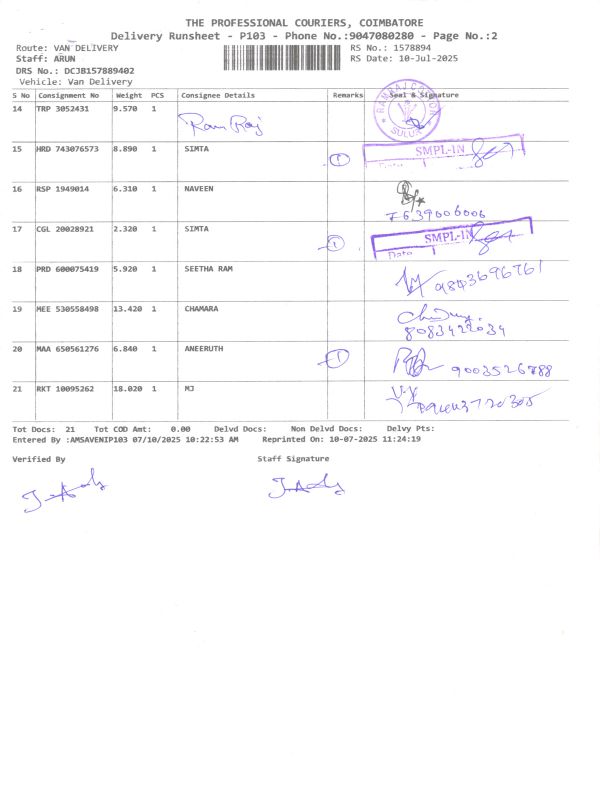 THE PROFESSIONAL COURIERS, COIMBATORE
Delivery Runsheet - P103 - Phone No.:9047080280 - Page No.:2
Route: VAN DELIVERY
RS No.: 1578894
Staff: ARUN
RS Date: 10-Jul-2025
DRS No.: DCJB157889402
Vehicle: Van Delivery
S No Consignment No Weight PCS Consignee Details Remarks Seal & Signature
14 TRP 3052431 9.570 1 Ram Raj RAMRAJ COTTON SULUR
15 HRD 743076573 8.890 1 SIMTA 1 SMPL-IN
Date
16 RSP 1949014 6.310 1 NAVEEN
7639006006
17 CGL 20028921 2.320 1 SIMTA 1 SMPL-IN
Date
18 PRD 600075419 5.920 1 SEETHA RAM 9843696761
19 MEE 530558498 13.420 1 CHAMARA
8083422034
20 MAA 650561276 6.840 1 ANEERUTH 1 9003526788
21 RKT 10095262 18.020 1 MJ
Tot Docs: 21 Tot COD Amt: 0.00 Delvd Docs: Non Delvd Docs: Delvy Pts:
Entered By :AMSAVENIP103 07/10/2025 10:22:53 AM Reprinted On: 10-07-2025 11:24:19
Verified By Staff Signature